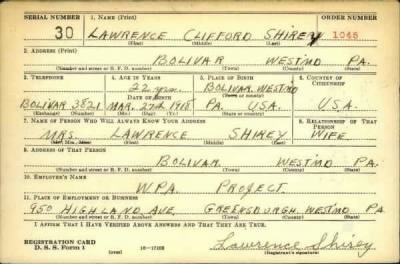 SERIAL NUMBER 1. NAME (Print) ORDER NUMBER
30 LAWRENCE CLIFFORD SHIREY 1045
(First) (Middle) (Last)
2. ADDRESS (Print)
BOLIVAR WESTM'D PA.
(Number and street or R. F. D. number) (Town) (County) (State)
3. TELEPHONE 4. AGE IN YEARS 5. PLACE OF BIRTH 6. COUNTRY OF CITIZENSHIP
22 yrs. BOLIVAR, WESTM'D
DATE OF BIRTH (Town or county)
BOLIVAR 3821 MAR. 27th 1918 PA. U.S.A. U.S.A.
(Exchange) (Number) (Mo.) (Day) (Yr.) (State or country)
7. NAME OF PERSON WHO WILL ALWAYS KNOW YOUR ADDRESS 8. RELATIONSHIP OF THAT PERSON
MRS. LAWRENCE SHIREY WIFE
(Mr., Mrs., Miss) (First) (Middle) (Last)
9. ADDRESS OF THAT PERSON
BOLIVAR WESTM'D PA
(Number and street or R. F. D. number) (Town) (County) (State)
10. EMPLOYER'S NAME
W.P.A. PROJECT
11. PLACE OF EMPLOYMENT OR BUSINESS
950 HIGHLAND AVE GREENSBURGH, WESTM'D PA
(Number and street or R. F. D. number) (Town) (County) (State)
I AFFIRM THAT I HAVE VERIFIED ABOVE ANSWERS AND THAT THEY ARE TRUE.
REGISTRATION CARD
D. S. S. Form 1 (over) 16—17105 Lawrence Shirey
(Registrant's signature)